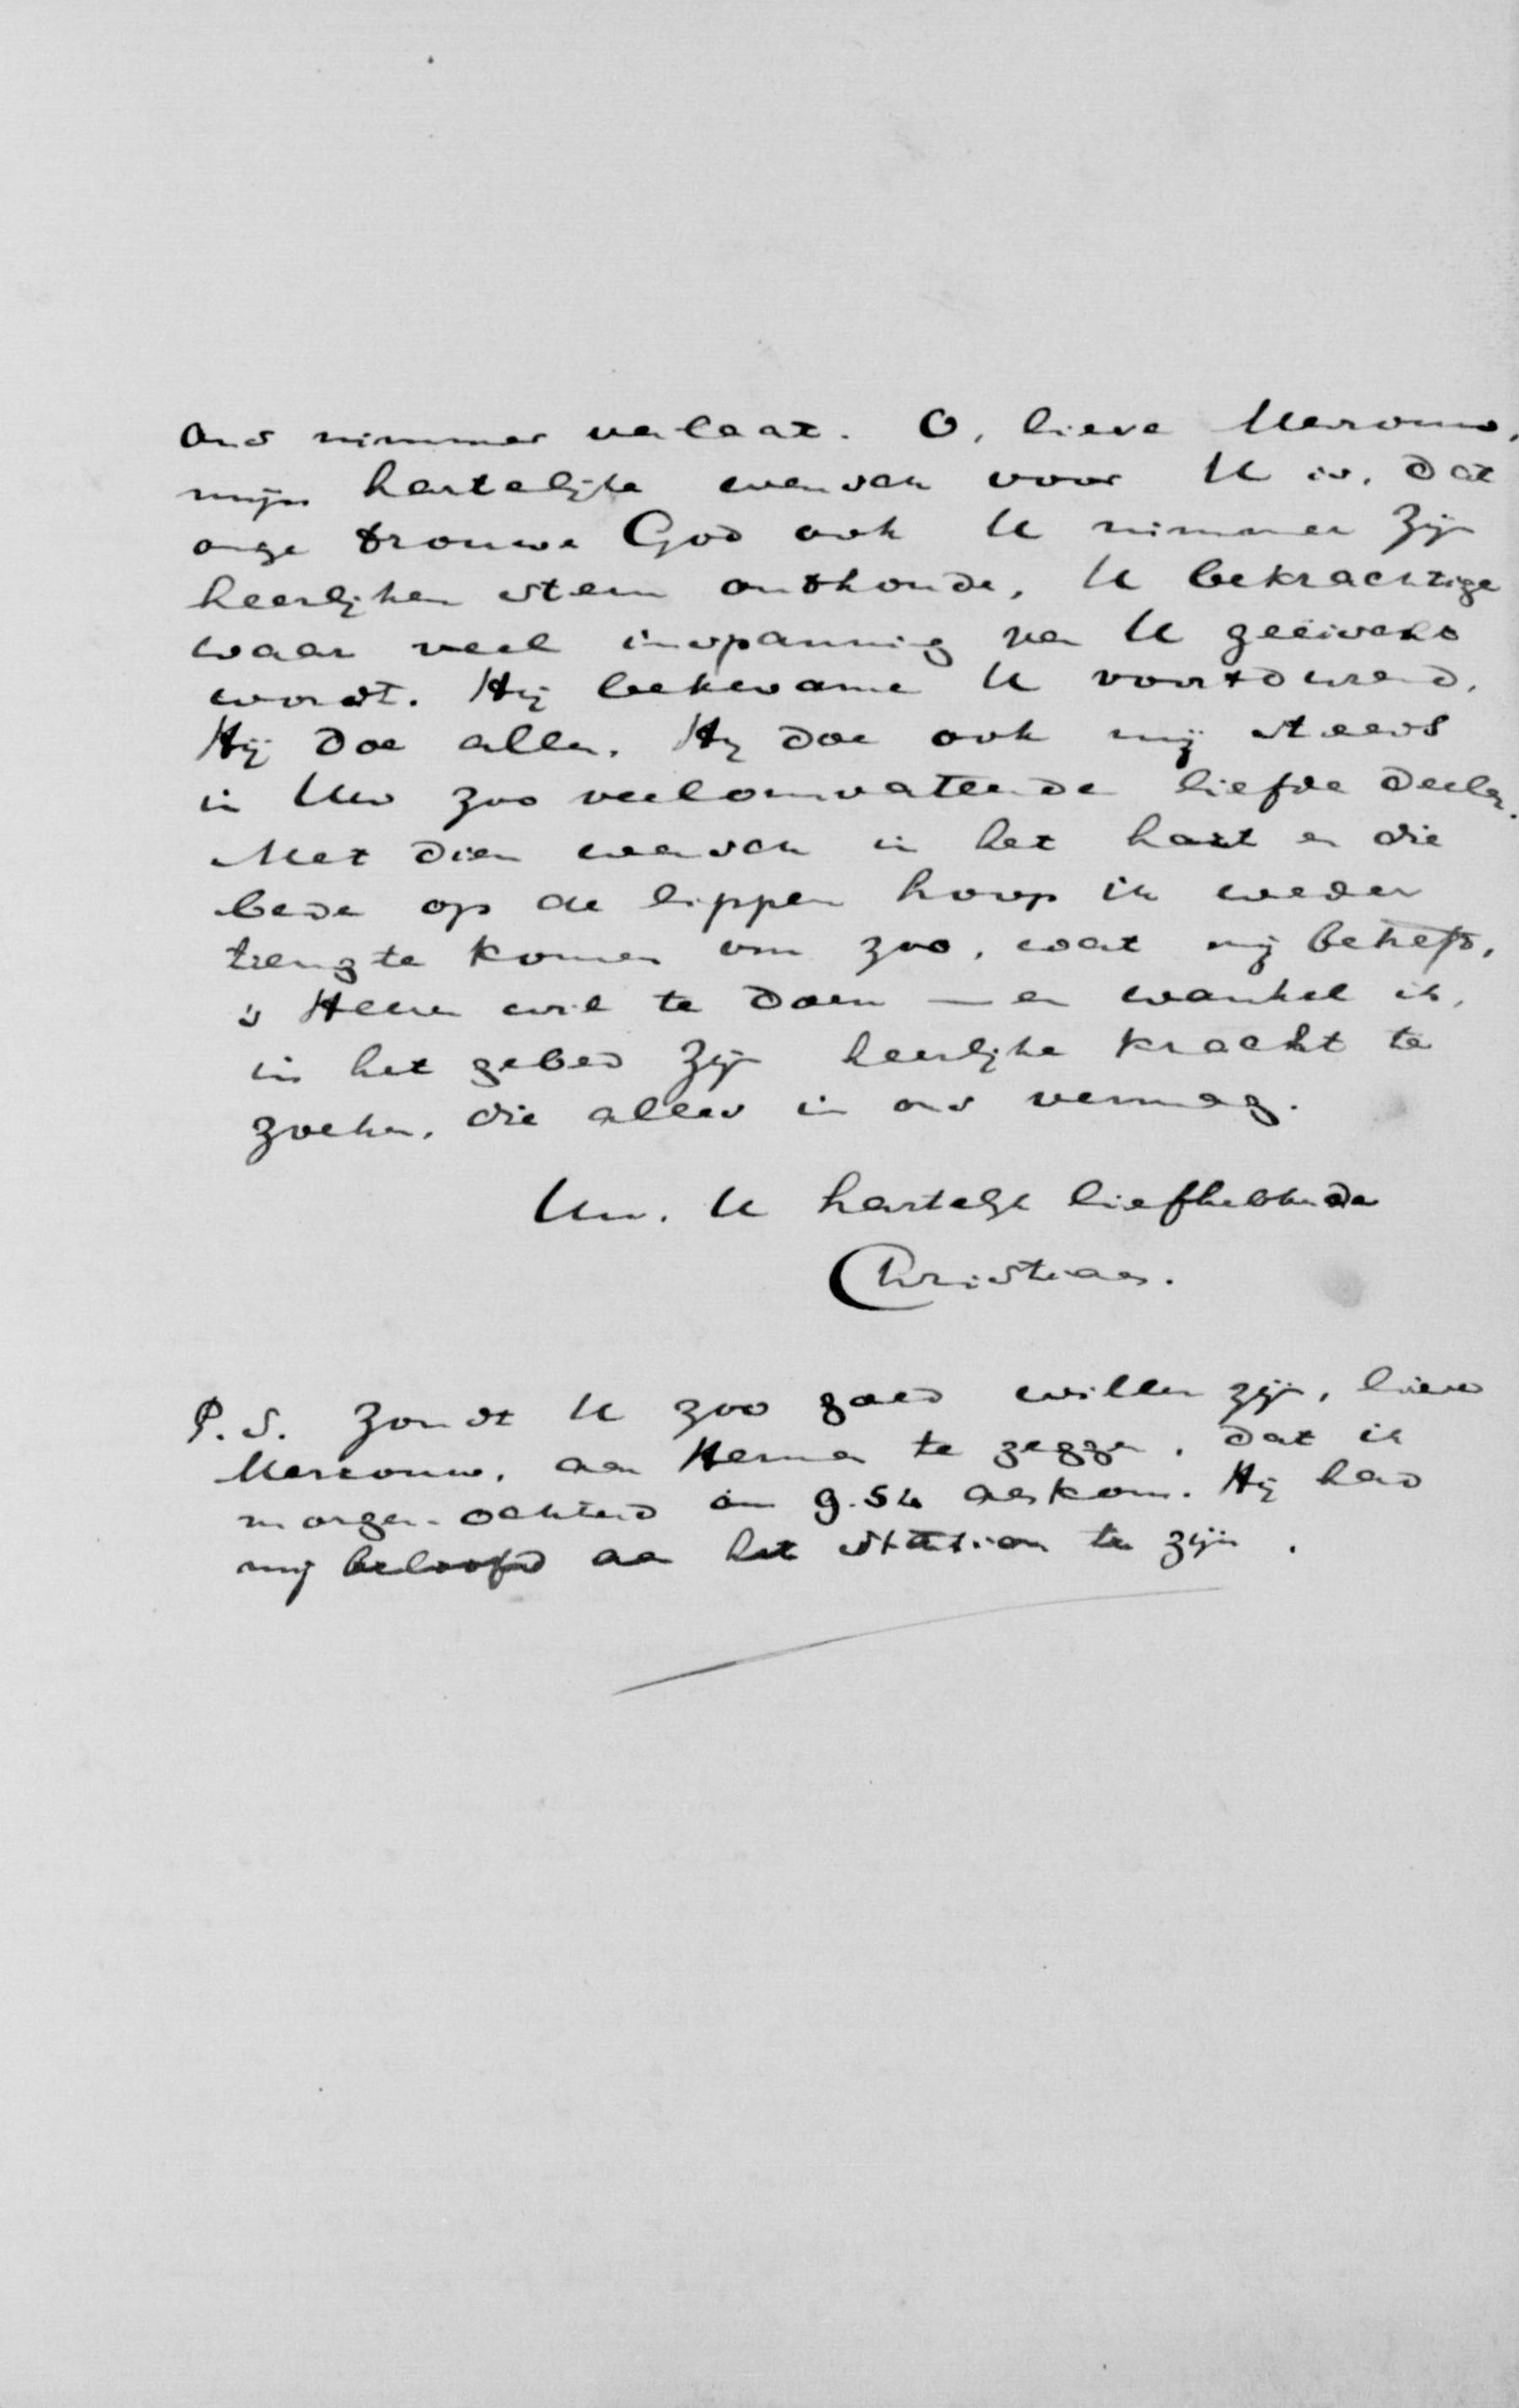 ons nimmer verlaat. O, lieve Mevrouw,
mijn hartelijke wensch voor U is, dat
onze trouwe God ook U nimmer Zijn
heerlijken steun onthoude, U bekrachtige
waar veel inspanning van U geëischt
wordt. Hij bekwame U voortdurend,
Hij doe allen. Hij doe ook mij steeds
in Uw zoo veelomvattende liefde deelen.
Met dien wensch in het hart en die
bede op de lippen hoop ik weder
terug te komen om zoo, wat mij betreft,
's Heeren wil te doen — en wankel ik,
in het gebed Zijn heerlijke kracht te
zoeken, die alles in ons vermag.
Uw, U hartelijk liefhebbende
Christiaan.
P.S. Zoudt U zoo goed willen zijn, lieve
Mevrouw, aan Herman te zeggen, dat ik
morgen-ochtend om 9.54 aankom. Hij had
mij beloofd aan het station te zijn.